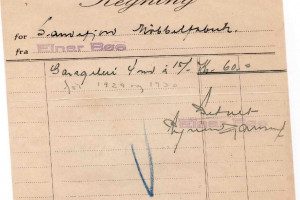 Regning
for Sandefjord Møbbelfabrik
fra Einar Bøe
Garageleie 4 md à 15/- Kr. 60.-
for 1929 og 1930
Betalt
Einar Bøe